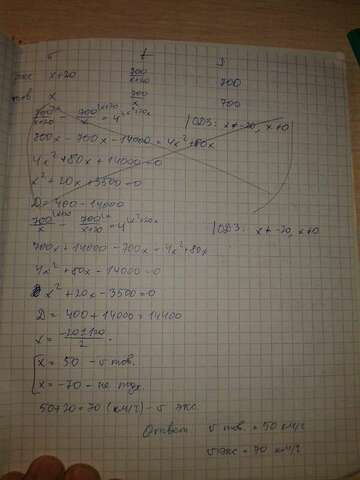 v t S
экс x+20 700/x+20 700
тов x 700/x 700
700/x+20 - 700/x = 4 | ОДЗ: x≠-20, x≠0
700x - 700x - 14000 = 4x² + 80x
4x² + 80x + 14000 = 0
x² + 20x + 3500 = 0
D = 400 - 14000
700/x - 700/x+20 = 4 | ОДЗ: x≠-20, x≠0
700x + 14000 - 700x = 4x² + 80x
4x² + 80x - 14000 = 0
x² + 20x - 3500 = 0
D = 400 + 14000 = 14400
x = -20±120/2
x = 50 - v тов.
x = -70 - не подх.
50+20 = 70 (км/ч) - v экс.
Ответ v тов. = 50 км/ч
v экс = 70 км/ч